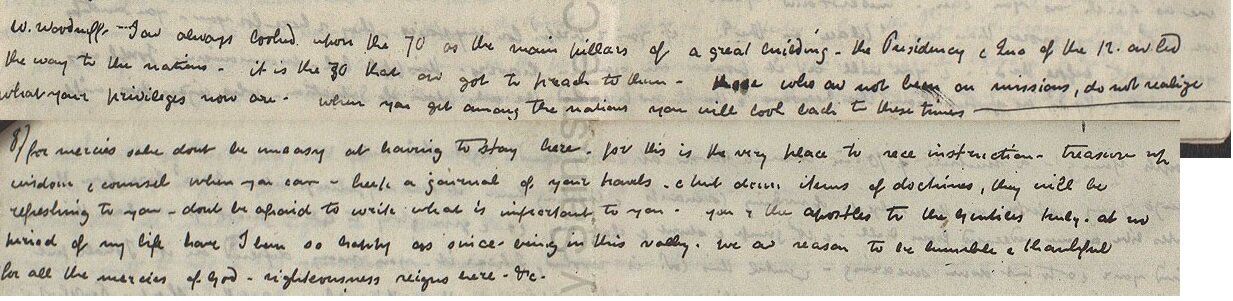 W. Woodruff. - I av always looked upon the 70 as the main pillars of a great building - the Presidency & Quo of the 12. av led
the way to the nations - it is the 70 that av got to preach to them - those who av not been on missions, do not realize
what your privileges now are - when you get among the nations you will look back to these times -
for mercies sake dont be uneasy at having to stay here - for this is the very place to rece instruction - treasure up
wisdom & counsel when you can - keep a journal of your travels - & put down items of doctrines, they will be
refreshing to you - dont be afraid to write what is important to you - you r the apostles to the Gentiles truly - at no
period of my life have I been so happy as since being in this valley - we av reason to be humble & thankful
for all the mercies of God - righteousness reigns here - &c -